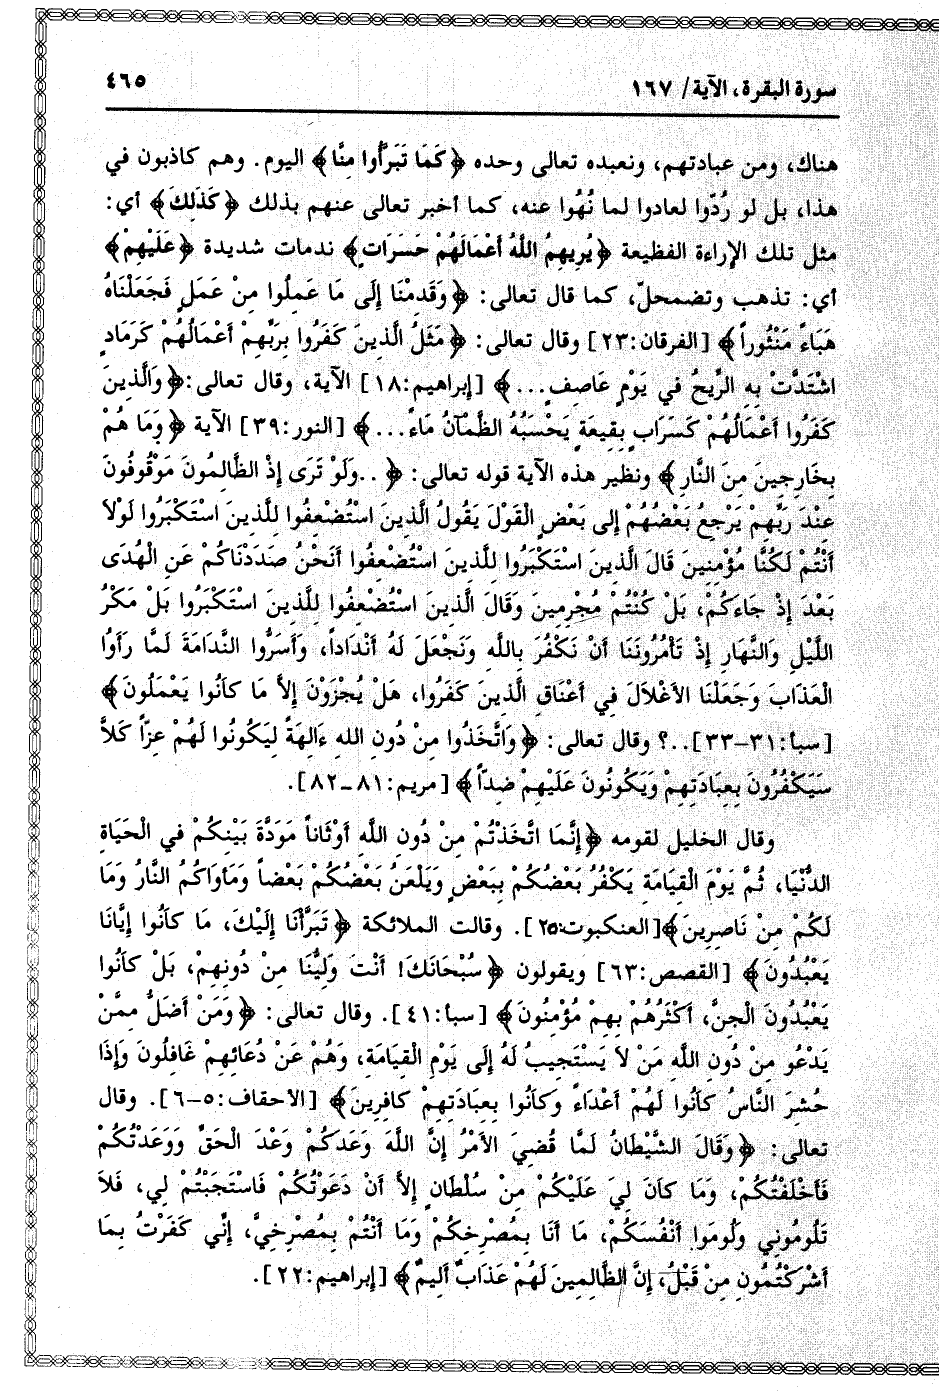 سورة البقرة، الآية/ ١٦٧
٤٦٥
هناك، ومن عبادتهم، ونعبده تعالى وحده ﴿كَمَا تَبَرَّأُوا مِنَّا﴾ اليوم. وهم كاذبون في
هذا، بل لو رُدّوا لعادوا لما نُهُوا عنه، كما أخبر تعالى عنهم بذلك ﴿كَذَلِكَ﴾ أي:
مثل تلك الإراءة الفظيعة ﴿يُرِيهِمُ اللَّهُ أَعْمَالَهُمْ حَسَرَاتٍ﴾ ندمات شديدة ﴿عَلَيْهِمْ﴾
أي: تذهب وتضمحلّ، كما قال تعالى: ﴿وَقَدِمْنَا إِلَى مَا عَمِلُوا مِنْ عَمَلٍ فَجَعَلْنَاهُ
هَبَاءً مَنْثُوراً﴾ [الفرقان:٢٣] وقال تعالى: ﴿مَثَلُ الَّذِينَ كَفَرُوا بِرَبِّهِمْ أَعْمَالُهُمْ كَرَمَادٍ
اشْتَدَّتْ بِهِ الرِّيحُ في يَوْمٍ عَاصِفٍ...﴾ [إبراهيم:١٨] الآية، وقال تعالى:﴿وَالَّذِينَ
كَفَرُوا أَعْمَالُهُمْ كَسَرَابٍ بِقِيعَةٍ يَحْسَبُهُ الظَّمْآنُ مَاءً...﴾ [النور:٣٩] الآية ﴿وَمَا هُمْ
بِخَارِجِينَ مِنَ النَّارِ﴾ ونظير هذه الآية قوله تعالى: ﴿..وَلَوْ تَرَى إِذْ الظَّالِمُونَ مَوْقُوفُونَ
عِنْدَ رَبِّهِمْ يَرْجِعُ بَعْضُهُمْ إِلى بَعْضٍ الْقَوْلَ يَقُولُ الَّذِينَ اسْتُضْعِفُوا لِلَّذِينَ اسْتَكْبَرُوا لَوْلاَ
أَنْتُمْ لَكُنَّا مُؤْمِنِينَ قَالَ الَّذِينَ اسْتَكْبَرُوا لِلَّذِينَ اسْتُضْعِفُوا أَنَحْنُ صَدَدْنَاكُمْ عَنِ الْهُدَى
بَعْدَ إِذْ جَاءَكُمْ، بَلْ كُنْتُمْ مُجْرِمِينَ وَقَالَ الَّذِينَ اسْتُضْعِفُوا لِلَّذِينَ اسْتَكْبَرُوا بَلْ مَكْرُ
اللَّيْلِ وَالنَّهَارِ إِذْ تَأْمُرُونَنَا أَنْ نَكْفُرَ بِاللَّهِ وَنَجْعَلَ لَهُ أَنْدَاداً، وَأَسَرُّوا النَّدَامَةَ لَمَّا رَأَوُا
الْعَذَابَ وَجَعَلْنَا الأَغْلاَلَ فِي أَعْنَاقِ الَّذِينَ كَفَرُوا، هَلْ يُجْزَوْنَ إِلاَّ مَا كَانُوا يَعْمَلُونَ﴾
[سبأ:٣١–٣٣]..؟ وقال تعالى: ﴿وَاتَّخَذُوا مِنْ دُونِ الله ءَالِهَةً لِيَكُونُوا لَهُمْ عِزّاً كَلاَّ
سَيَكْفُرُونَ بِعِبَادَتِهِمْ وَيَكُونُونَ عَلَيْهِمْ ضِدّاً﴾ [مريم:٨١–٨٢].
وقال الخليل لقومه ﴿إِنَّمَا اتَّخَذْتُمْ مِنْ دُونِ اللَّهِ أَوْثَاناً مَوَدَّةَ بَيْنِكُمْ فِي الْحَيَاةِ
الدُّنْيَا، ثُمَّ يَوْمَ الْقِيَامَةِ يَكْفُرُ بَعْضُكُمْ بِبَعْضٍ وَيَلْعَنُ بَعْضُكُمْ بَعْضاً وَمَأوَاكُمُ النَّارُ وَمَا
لَكُمْ مِنْ نَاصِرِينَ﴾[العنكبوت:٢٥]. وقالت الملائكة ﴿تَبَرَّأْنَا إِلَيْكَ، مَا كَانُوا إِيَّانَا
يَعْبُدُونَ﴾ [القصص:٦٣] ويقولون ﴿سُبْحَانَكَ! أَنْتَ وَلِيُّنَا مِنْ دُونِهِمْ، بَلْ كَانُوا
يَعْبُدُونَ الْجِنَّ، أَكْثَرُهُمْ بِهِمْ مُؤْمِنُونَ﴾ [سبأ:٤١]. وقال تعالى: ﴿وَمَنْ أَضَلُّ مِمَّنْ
يَدْعُو مِنْ دُونِ اللَّهِ مَنْ لاَ يَسْتَجِيبُ لَهُ إِلَى يَوْمِ الْقِيَامَةِ، وَهُمْ عَنْ دُعَائِهِمْ غَافِلُونَ وَإِذَا
حُشِرَ النَّاسُ كَانُوا لَهُمْ أَعْدَاءً وكَانُوا بِعِبَادَتِهِمْ كافِرِينَ﴾ [الاحقاف:٥–٦]. وقال
تعالى: ﴿وَقَالَ الشَّيْطَانُ لَمَّا قُضِيَ الأَمْرُ إِنَّ اللَّهَ وَعَدَكُمْ وَعْدَ الْحَقِّ وَوَعَدْتُكُمْ
فَأَخْلَفْتُكُمْ، وَمَا كَانَ لِيَ عَلَيْكُمْ مِنْ سُلْطَانٍ إِلاَّ أَنْ دَعَوْتُكُمْ فَاسْتَجَبْتُمْ لِي، فَلاَ
تَلُومُونِي وَلُومَوا أَنْفُسَكُمْ، مَا أَنَا بِمُصْرِخِكُمْ وَمَا أَنْتُمْ بِمُصْرِخِيَّ، إِنِّي كَفَرْتُ بِمَا
أَشْرَكْتُمُونِ مِنْ قَبْلُ، إِنَّ الظَّالِمِينَ لَهُمْ عَذَابٌ أَلِيمٌ﴾ [إبراهيم:٢٢].